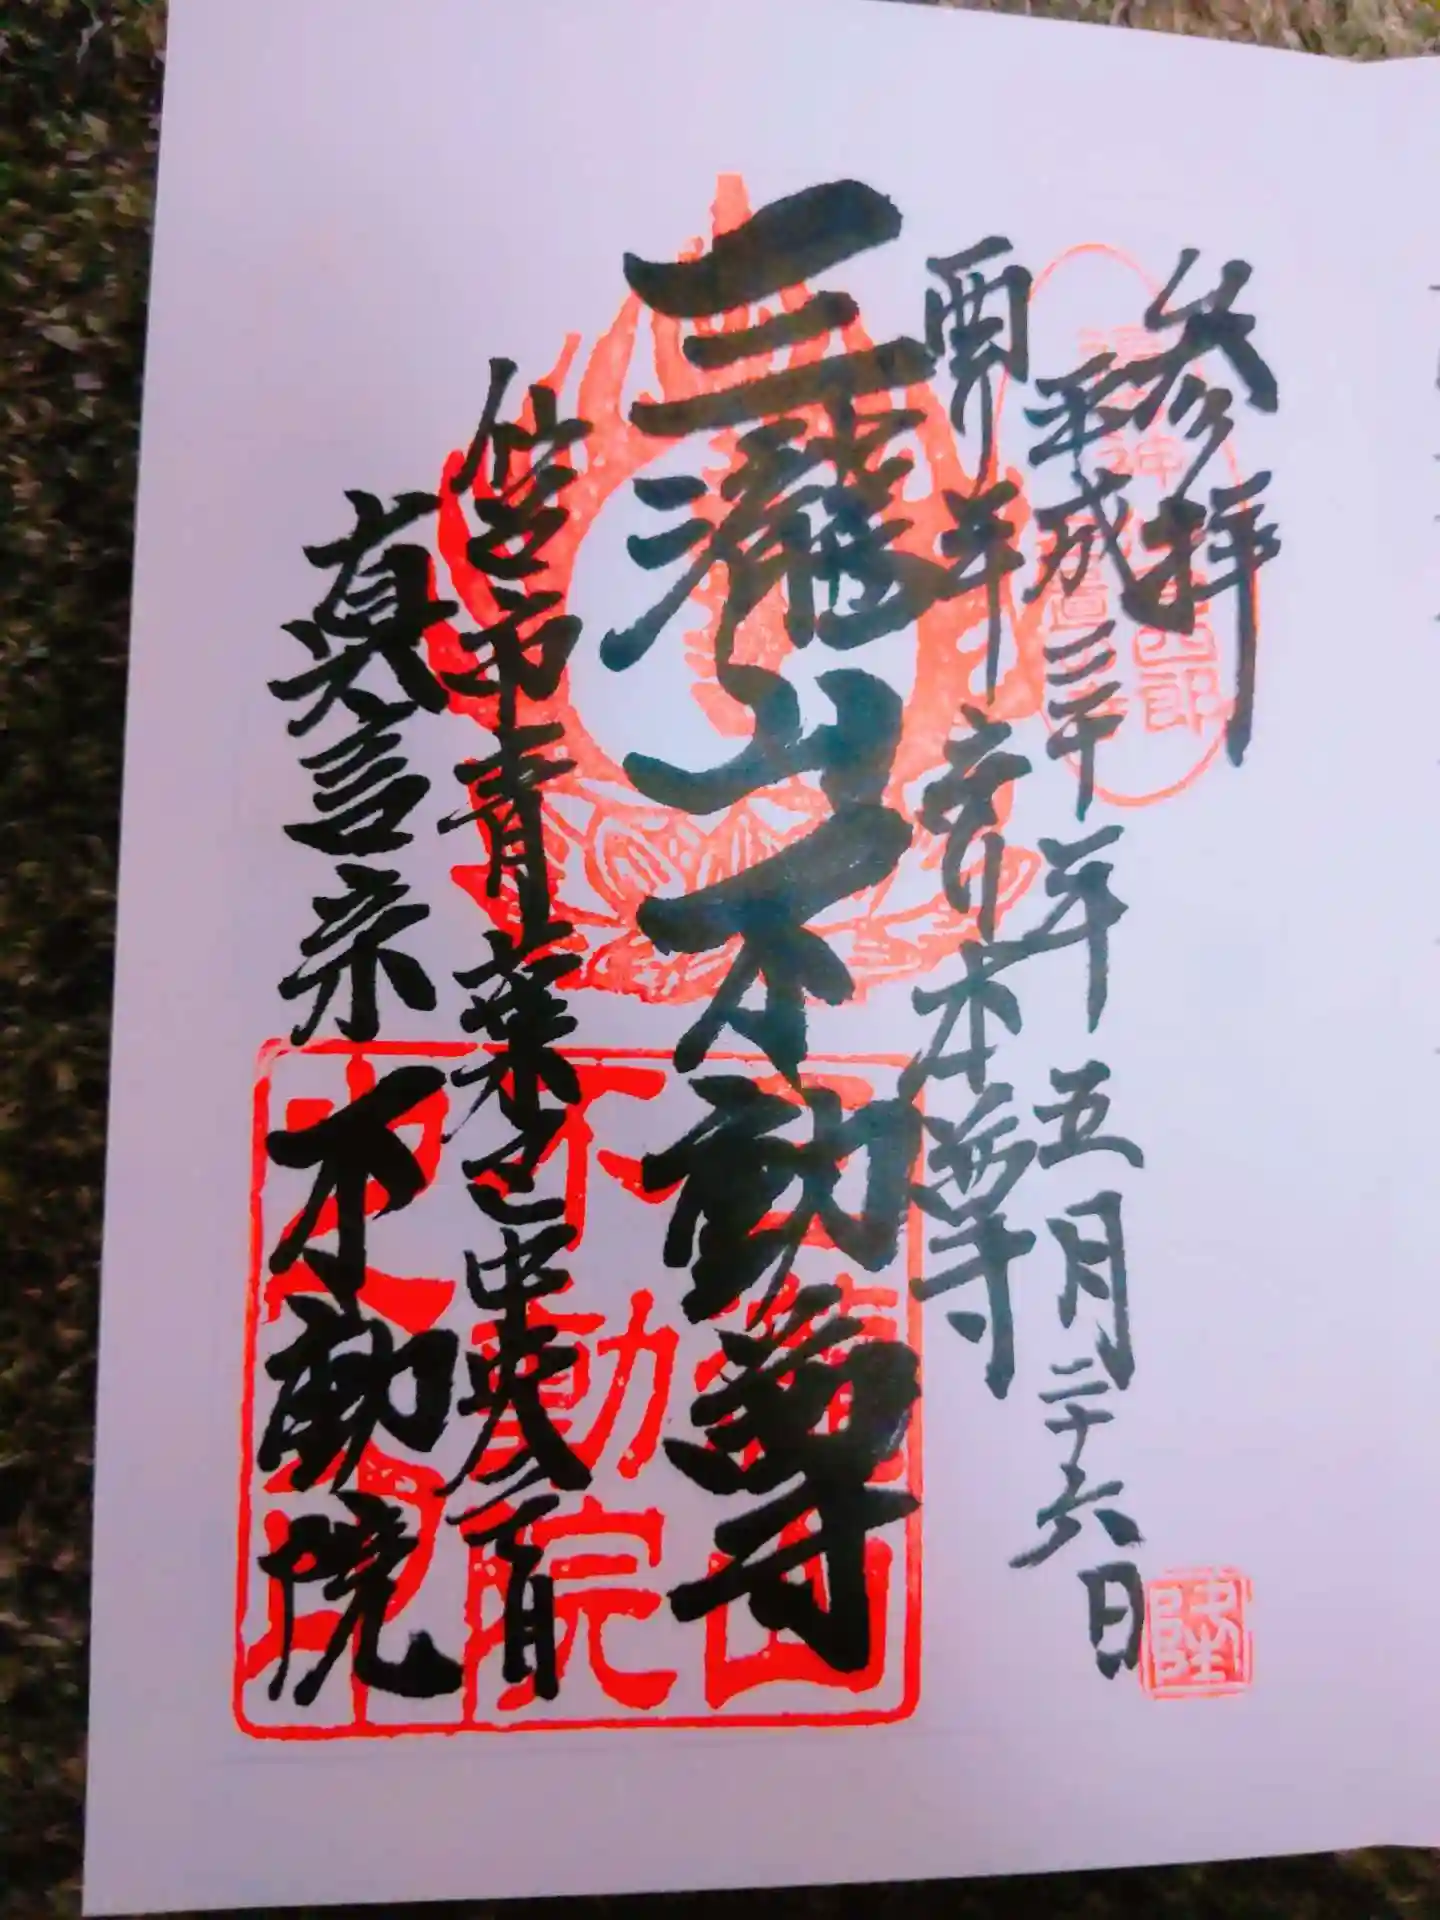 参拝
平成三十年五月二十六日
酉年亥年本尊
三瀧山不動尊
仙台市青葉区中央二丁目
真言宗不動院
不動院